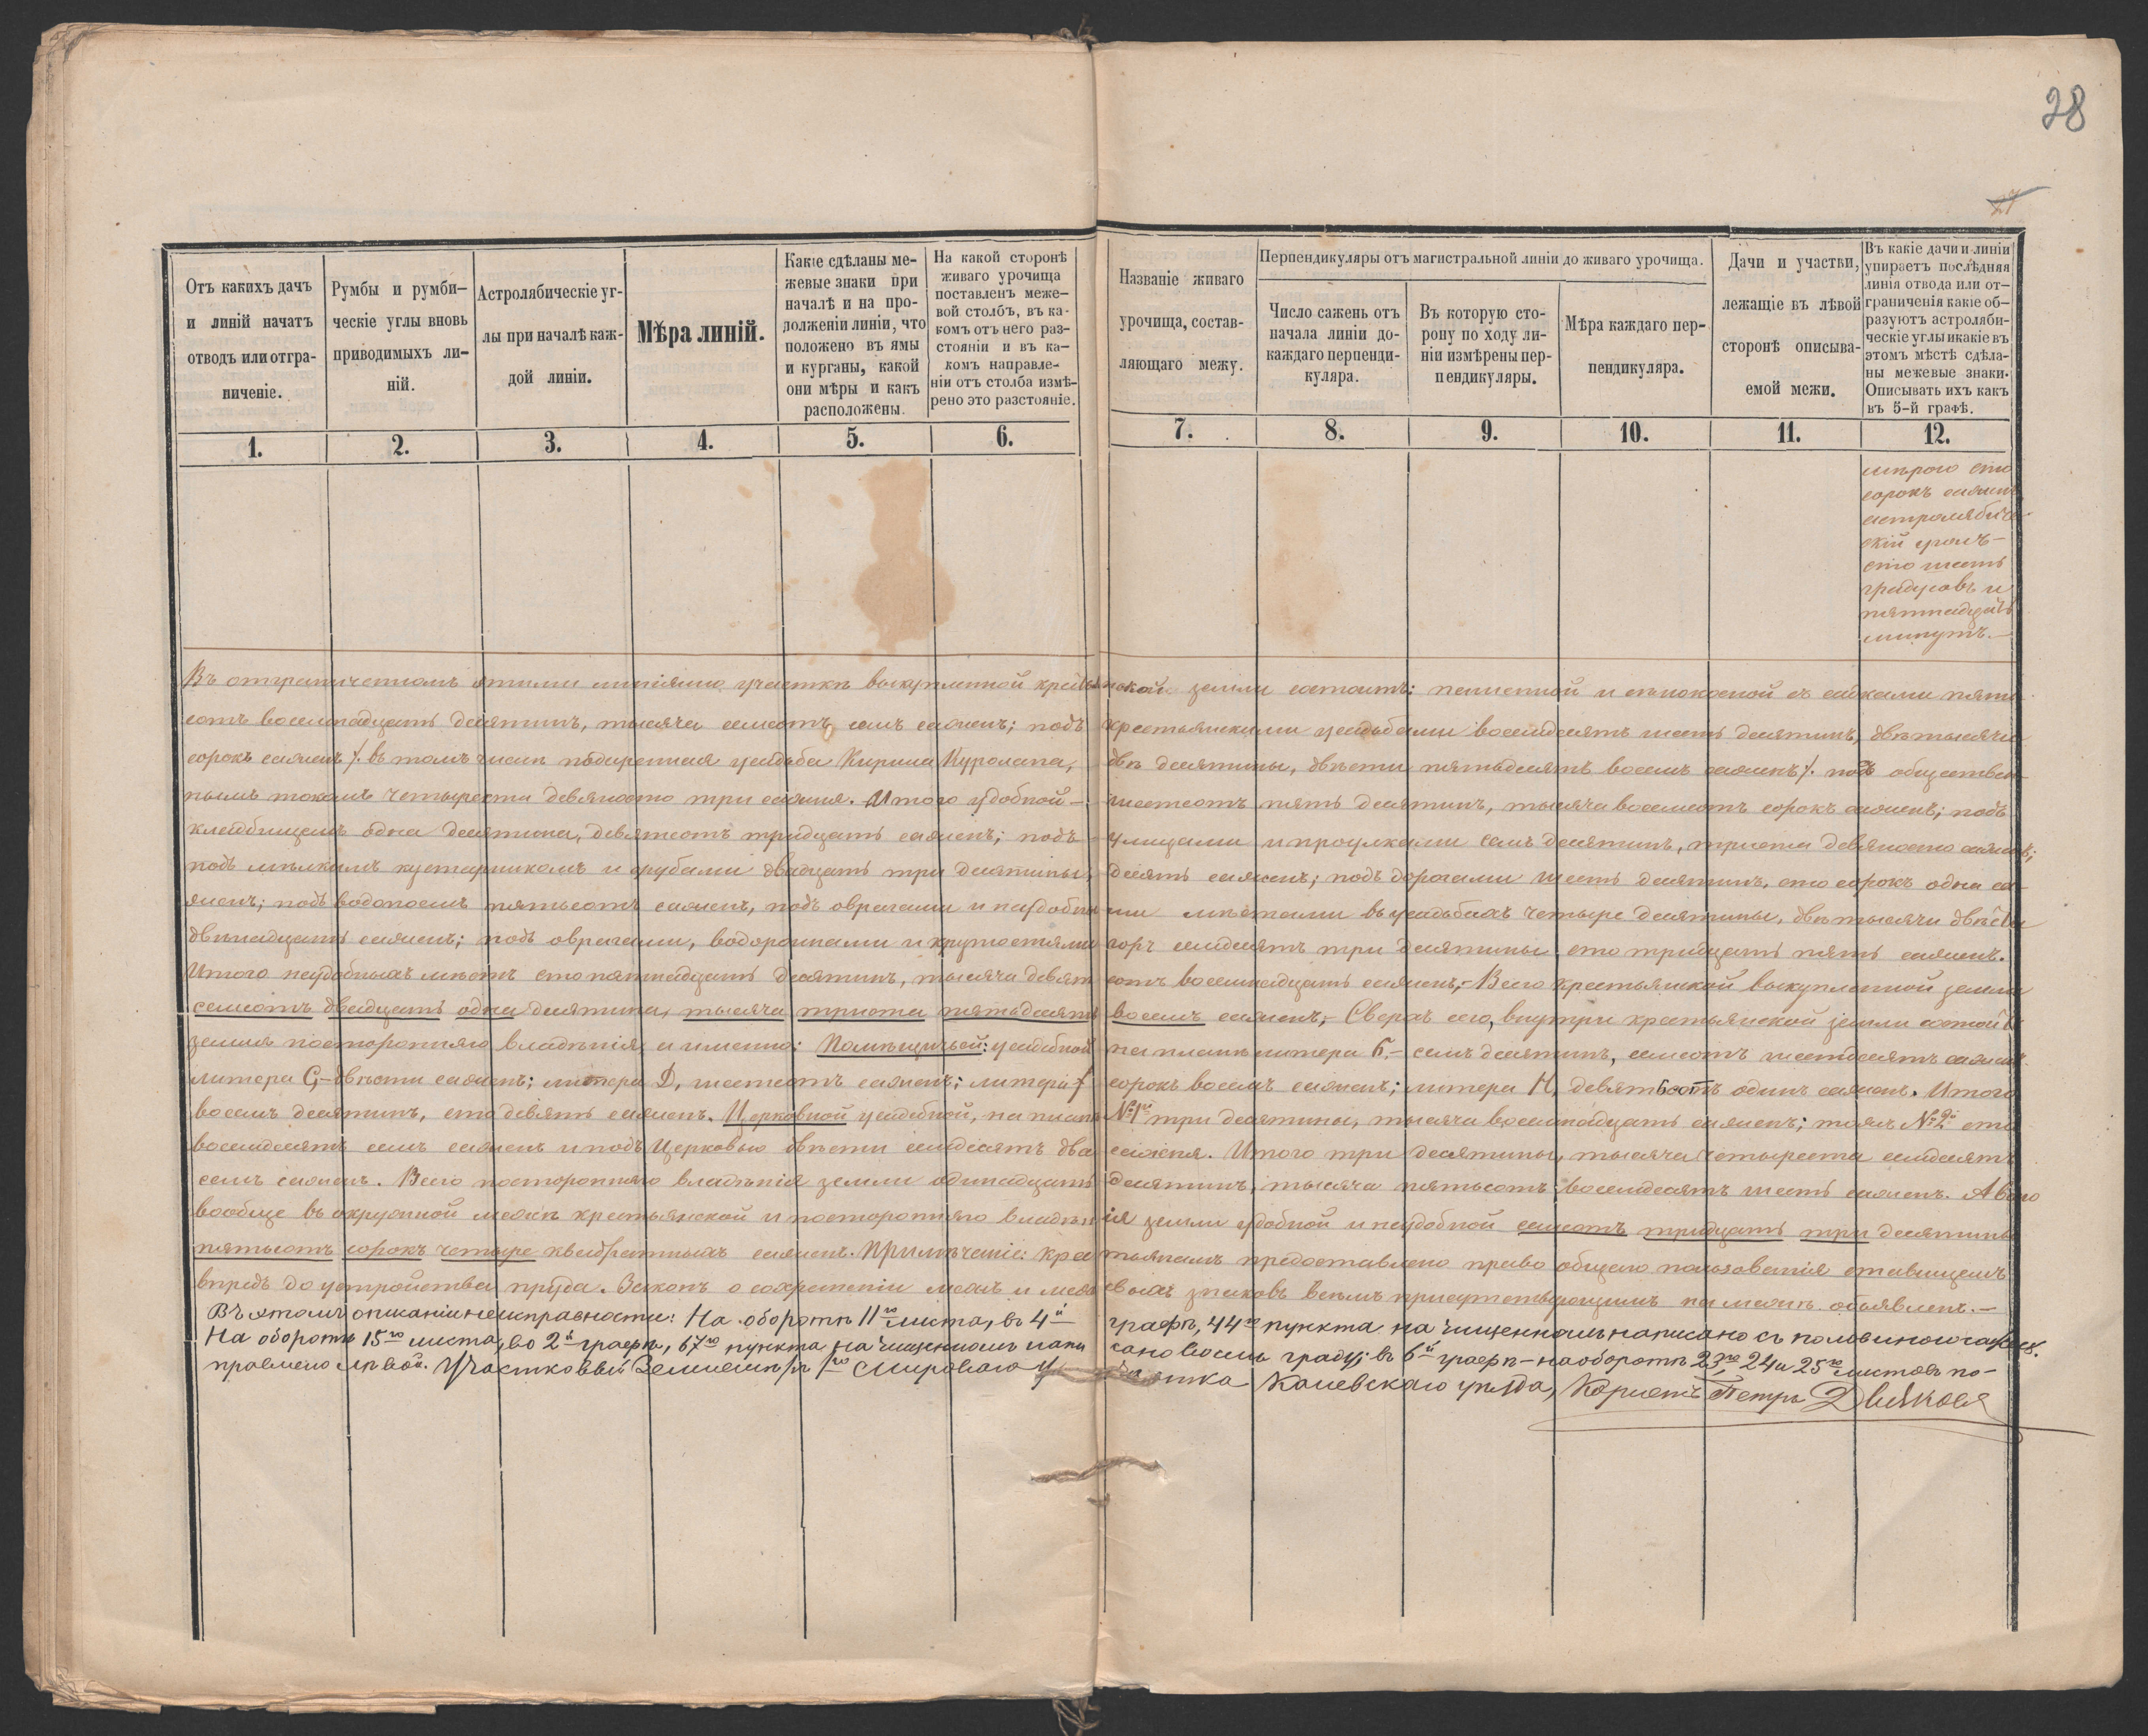 28
27
Отъ какихъ дачъ
и линій начатъ
отводъ или отгра-
ниченіе.
Румбы и румби-
ческіе углы вновь
приводимыхъ ли-
ній.
Астролябическіе уг-
лы при началѣ каж-
дой линіи.
Мѣра линій.
Какіе сдѣланы ме-
жевые знаки при
началѣ и на про-
долженіи линіи, что
положено въ ямы
и курганы, какой
они мѣры и какъ
расположены.
На какой сторонѣ
живаго урочища
поставленъ меже-
вой столбъ, въ ка-
комъ отъ него раз-
стояніи и въ ка-
комъ направле-
ніи отъ столба измѣ-
рено это разстояніе.
Названіе живаго
урочища, состав-
ляющаго межу.
Перпендикуляры отъ магистральной линіи до живаго урочища.
Число сажень отъ
начала линіи до-
каждаго перпенди-
куляра.
Въ которую сто-
рону по ходу ли-
ніи измѣрены пер-
пендикуляры.
Мѣра каждаго пер-
пендикуляра.
Дачи и участки,
лежащіе въ лѣвой
сторонѣ описыва-
емой межи.
Въ какіе дачи и линіи
упираетъ послѣдняя
линія отвода или от-
граниченія какіе об-
разуютъ астроляби-
ческіе углы икакіе въ
этомъ мѣстѣ сдѣла-
ны межевые знаки.
Описывать ихъ какъ
въ 5-й графѣ.
1. 2. 3. 4. 5. 6. 7. 8. 9. 10. 11. 12.
мѣрою сто
сорокъ сажень
астролябиче-
скій уголъ-
сто шесть
градусовъ и
пятнадцать
минутъ.-
Въ отграниченномъ этими линіями участкѣ выкупленной крестьянской земли состоитъ: пашенной и сѣнокосной съ сѣнокосами пять
сотъ восемнадцать десятинъ, тысяча семсотъ семь сажень; подъ крестьянскими усадьбами восемдесятъ шесть десятинъ, двѣ тысячи
сорокъ сажень /. въ томъ числѣ подаренная усадьба Кирила Куролапа, двѣ десятины, двѣсти пятьдесятъ восемь сажень/. подъ обществен-
нымъ токомъ четыреста девяносто три сажня. Итого удобной- шестсотъ пять десятинъ, тысяча восемсотъ сорокъ сажень; подъ
кладбищемъ одна десятина, девятсотъ тридцать сажень; подъ улицами и проулками семь десятинъ, триста девяносто сажень;
подъ мѣлкимъ кустарникомъ и срубами двадцать три десятины, десять сажень; подъ дорогами шесть десятинъ, сто сорокъ одна са-
жень; подъ водопоемъ пятьсотъ сажень, подъ оврагами и неудобными мѣстами въ усадьбахъ четыре десятины, двѣ тысячи двѣсти
двѣнадцать сажень; подъ оврагами, водороинами и крутостями горъ семдесятъ три десятины сто тридцать пять сажень.
Итого неудобныхъ мѣстъ сто пятнадцать десятинъ, тысяча девятсотъ восемнадцать сажень,- Всего крестьянской выкупленной земли
семсотъ двадцать одна десятина, тысяча триста пятьдесятъ восемь сажень,- Сверхъ сего, внутри крестьянской земли состоитъ
земля посторонняго владѣнія, а именно: Помѣщичьей: усадебной на планѣ литера Б,- семь десятинъ, семсотъ шестдесятъ сажень
литера С,- двѣсти сажень; литера D, шестсотъ сажень; литера f сорокъ восемь сажень; литера Н, девятьсотъ одинъ сажень. Итого
восемь десятинъ, сто девять сажень. Церковной усадебной, на планѣ №1й три десятины, тысяча восемнадцать сажень; тожъ №2й сто
восемдесятъ семь сажень и подъ церковью двѣсти семдесятъ два сажня. Итого три десятины, тысяча четыреста семдесятъ
семь сажень. Всего посторонняго владѣнія земли одинадцать десятинъ, тысяча пятьсотъ восемдесятъ шесть сажень. А всего
вообще въ окружной межѣ крестьянской и посторонняго владѣнія земли удобной и неудобной семсотъ тридцать три десятины
пятьсотъ сорокъ четыре квадратныхъ сажень. Примѣчаніе: Крестьянамъ предоставлено право общаго пользованія ставищемъ
впредь до устройства пруда. Законъ о сохраненіи межъ и межевыхъ знаковъ всѣмъ присутствующимъ на межѣ объявленъ.-
Въ этомъ описаніи неисправности: На оборотѣ 11го листа, въ 4й графѣ, 44го пункта на чищенномъ написано съ половиною саж.
На оборотѣ 15го листа, во 2й графѣ, 67го пункта на чищенномъ написано восемь граду; въ 6й графѣ- на оборотѣ 23го, 24 и 25го листовъ по-
правлено лѣвой. Участковый Землемѣръ 1го Мироваго участка Каневскаго уѣзда, Корнетъ Петръ